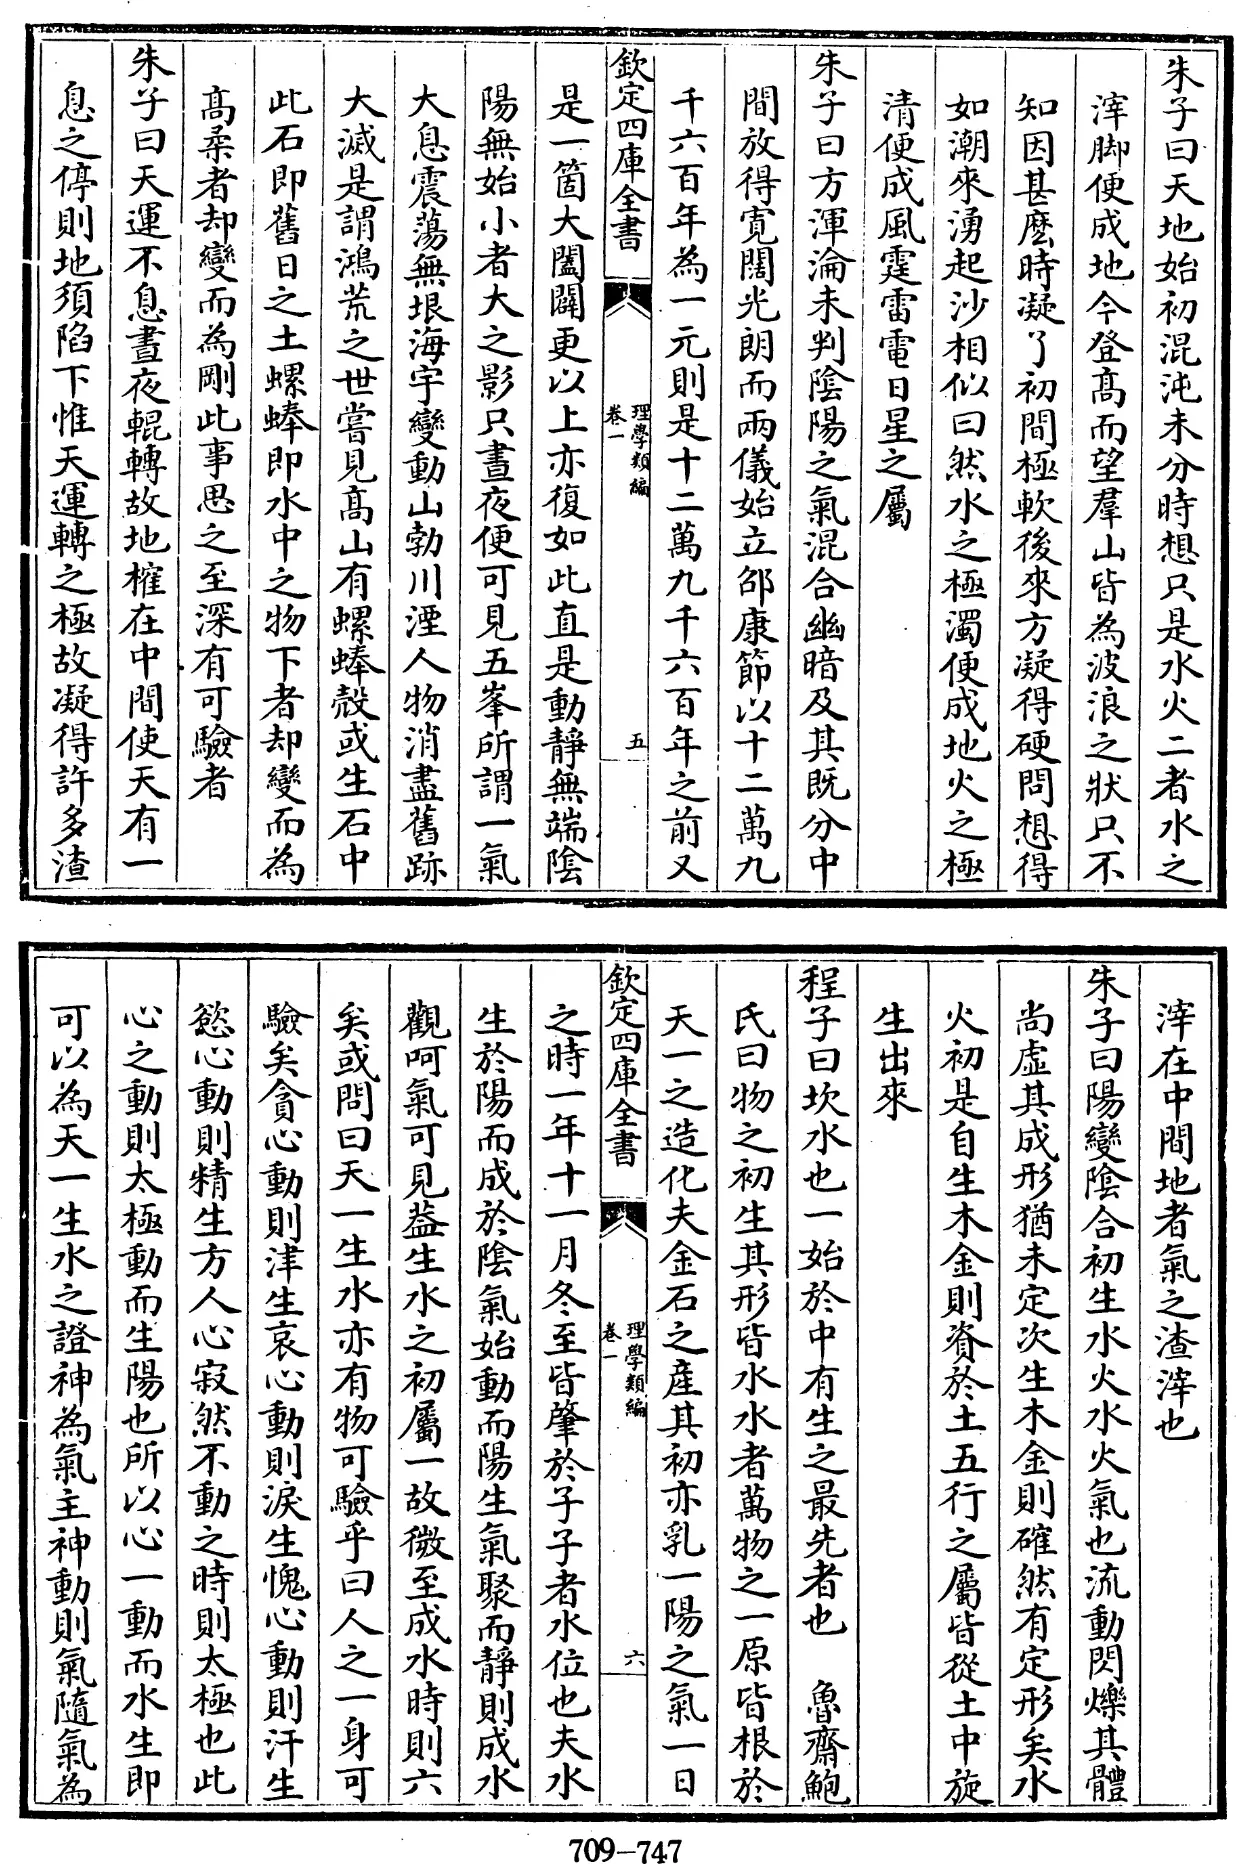 朱子曰天地始初混沌未分時想只是水火二者水之
滓脚便成地今登髙而望羣山皆為波浪之狀只不
知因甚麽時凝了初間極軟後來方凝得硬問想得
如潮來湧起沙相似曰然水之極濁便成地火之極
清便成風霆雷電日星之屬
朱子曰方渾淪未判陰陽之氣混合幽暗及其既分中
間放得寛闊光朗而兩儀始立邵康節以十二萬九
千六百年為一元則是十二萬九千六百年之前又
欽定四庫全書
理學類編
卷一
五
是一箇大闔闢更以上亦復如此直是動靜無端陰
陽無始小者大之影只晝夜便可見五峯所謂一氣
大息震蕩無垠海宇變動山勃川湮人物消盡舊跡
大滅是謂鴻荒之世嘗見髙山有螺蜯殻或生石中
此石即舊日之土螺蜯即水中之物下者却變而為
髙柔者却變而為剛此事思之至深有可驗者
朱子曰天運不息晝夜輥轉故地搉在中間使天有一
息之停則地須陷下惟天運轉之極故凝得許多渣
滓在中間地者氣之渣滓也
朱子曰陽變陰合初生水火水火氣也流動閃爍其體
尚虚其成形猶未定次生木金則確然有定形矣水
火初是自生木金則資於土五行之屬皆從土中旋
生出來
程子曰坎水也一始於中有生之最先者也　魯齋鮑
氏曰物之初生其形皆水水者萬物之一原皆根於
天一之造化夫金石之産其初亦乳一陽之氣一日
欽定四庫全書
理學類編
卷一
六
之時一年十一月冬至皆肇於子子者水位也夫水
生於陽而成於陰氣始動而陽生氣聚而靜則成水
觀呵氣可見葢生水之初屬一故微至成水時則六
矣或問曰天一生水亦有物可驗乎曰人之一身可
驗矣貪心動則津生哀心動則淚生愧心動則汗生
慾心動則精生方人心寂然不動之時則太極也此
心之動則太極動而生陽也所以心一動而水生即
可以為天一生水之證神為氣主神動則氣隨氣為
709-747